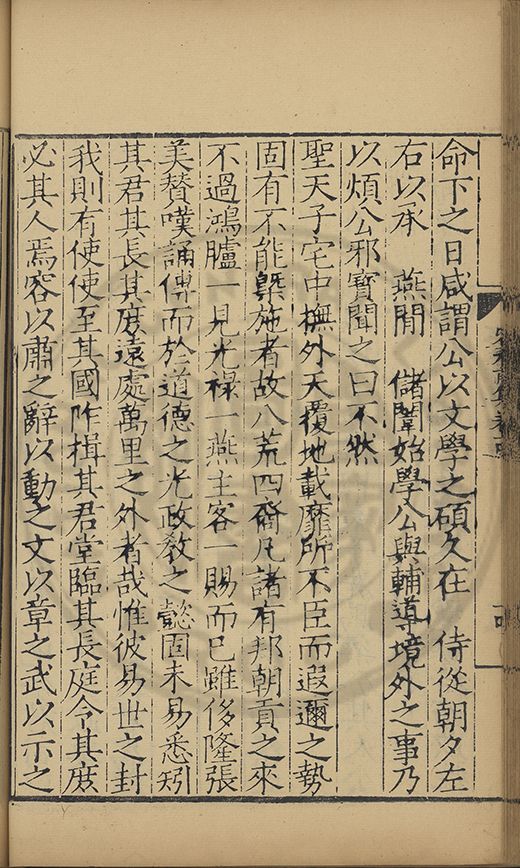 命下之日咸謂公以文學之碩久在　侍從朝夕左
右以承　燕閒　儲闈始學公與輔導境外之事乃
以煩公邪寳聞之曰不然
聖天子宅中撫外天覆地載靡所不臣而遐邇之勢
固有不能槩施者故八荒四裔凡諸有邦朝貢之來
不過鴻臚一見光禄一燕主客一賜而已雖侈隆張
美賛嘆誦傳而於道德之光政敎之懿固未易悉矧
其君其長其庶遠處萬里之外者哉惟彼易世之封
我則有使使至其國阼楫其君堂臨其長庭令其庶
必其人焉容以肅之辭以動之文以章之武以示之